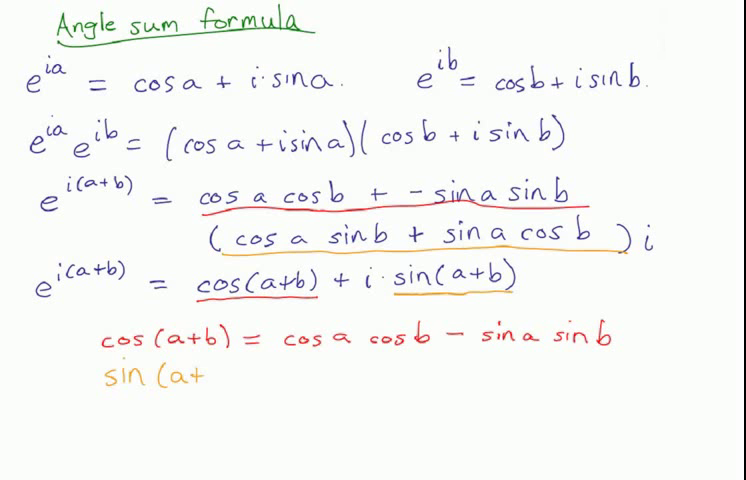 Angle sum formula
e^{ia} = cos a + i · sin a. e^{ib} = cos b + i sin b.
e^{ia} e^{ib} = (cos a + i sin a)(cos b + i sin b)
e^{i(a+b)} = cos a cos b + - sin a sin b
(cos a sin b + sin a cos b) i
e^{i(a+b)} = cos(a+b) + i · sin(a+b)
cos (a+b) = cos a cos b - sin a sin b
sin (a+